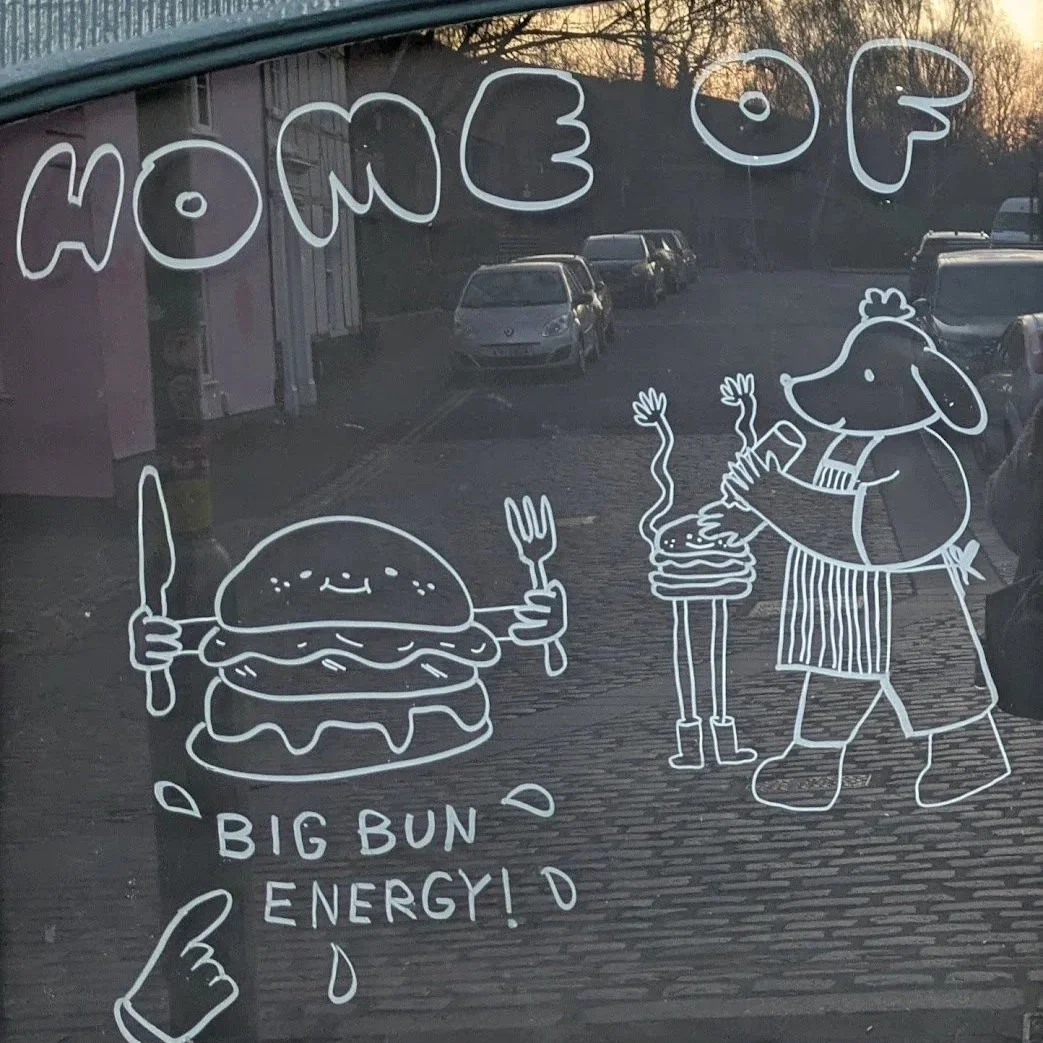 HOME OF
BIG BUN
ENERGY!